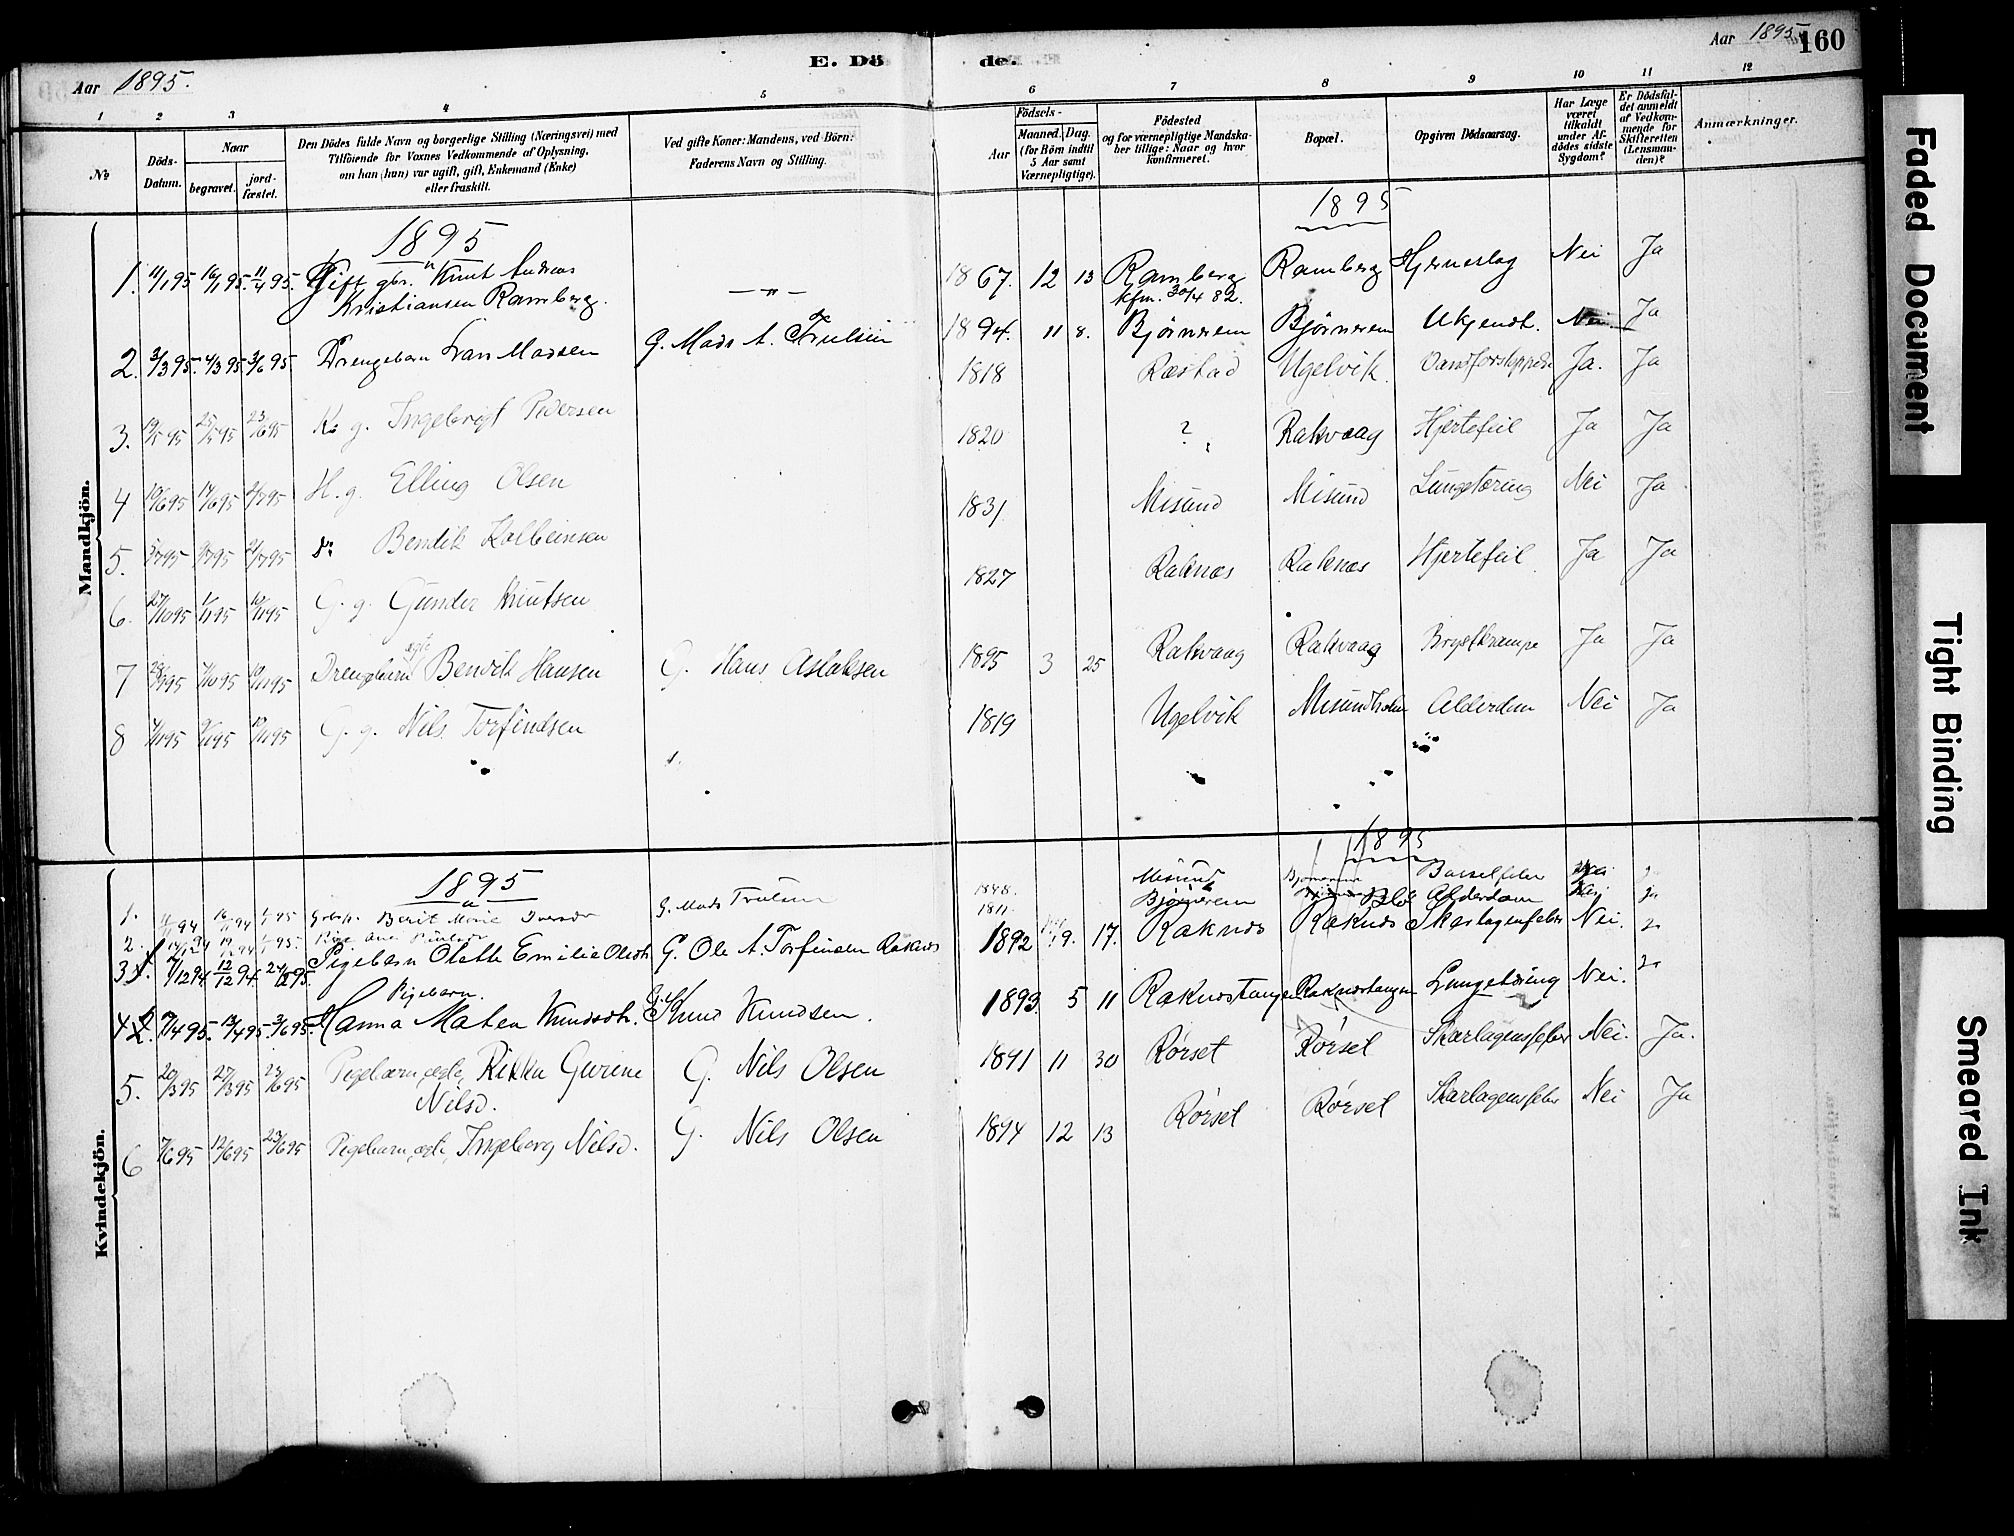 Aar 1895.
E. Dö
de.
Aar 1895
160
1 2 3 4 5 6 7 8 9 10 11 12
No
Döds-Datum.
Naar
begravet.
jord-fæstet.
Den Dödes fulde Navn og borgerlige Stilling (Næringsvei) med
Tilföiende for Voxnes Vedkommende af Oplysning,
om han (hun) var ugift, gift, Enkemand (Enke)
eller fraskilt.
Ved gifte Koner: Mandens, ved Börn:
Faderens Navn og Stilling.
Födsels-
Aar
Maaned. Dag.
(for Börn indtil
5 Aar samt
Værnepligtige).
Födested
og for værnepligtige Mandska-
ber tillige: Naar og hvor
konfirmeret.
Bopæl.
Opgiven Dödsaarsag.
Har Læge
været
tilkaldt
under Af-
dödes sidste
Sygdom?
Er Dödsfal-
det anmeldt
af Vedkom-
mende for
Skifteretten
(Lensman-
den)?
Anmærkninger.
Mandkjön.
1895
1895
1. 11/1 95 16/1 95. 11/4 95. Gift gbr. Knut Andreas Kristiansen Ramberg. — " — 1867. 12 13 Ramberg kfm. 30/4 82. Ramberg Hjerneslag Nei Ja
2. 3/3 95. 4/3 95 3/6 95 Drengebarn Lars Madsen G. Mads A. Trulsen 1894. 11 8. Bjørnerem Bjørnerem Ukjendt. Nei Ja
3. 19/5 95 25/5 95 23/6 95 K. g. Ingebrigt Pedersen 1818 Ræstad Ugelvik. Vandforstoppelse Ja. Ja
4 10/6 95 14/6 95 2/7 95 H. g. Elling Olsen 1820 ? Rakvaag Hjertefeil Ja Ja
5. 3/7 95 9/7 95 21/7 95 Bendik Kolbeinsen 1831 Misund Misund Lungetæring Nei Ja
6. 27/10 95 1/11 95 10/11 95 G. g. Gunder Knutsen 1827 Raknæs Raknæs Hjertefeil Ja Ja
7 28/9 95 7/10 95 10/11 95 Drengebarn ægte Bendik Hansen G. Hans Aslaksen 1895 3 25 Rakvaag Rakvaag Brystkrampe Ja Ja
8 4/11 95 9/11 95 10/11 95 G. g. Nils Torfindsen 1819 Ugelvik Misundholm Alderdom Nei Ja
Kvindekjön.
1895
1895
1. 94 94 95 Berit Marie G. Mads Trulsen 1848. Misund Barselfeber Nei
2. 94 95. 1811. Bjørnerem Alderdom Nei
3 1. 7/12 94 12/12 94 95. Pigebarn Olette Emilie Olsdtr G. Ole A. Torfinsen Raknæs 1892 9. 17. Raknæs Raknæs Skarlagensfeber Nei. Ja
4 2. 9/4 95. 13/4 95. 3/6 95. Pigebarn. Hanna Maten Knudsdtr. G. Knud Knudsen. 1893. 5 11 Raknæstangen Raknæstangen Lungetæring Nei. Ja
5. 20/3 95 27/3 95 23/6 95 Pigebarn, ægte, Rikka Gurine Nilsd. G. Nils Olsen 1891 11 30 Rørset Rørset Skarlagensfeber Nei. Ja.
6 7/6 95 12/6 95 23/6 95 Pigebarn, ægte, Ingeborg Nilsd. G. Nils Olsen 1894 12 13 Rørset Rørset Skarlagensfeber Nei Ja
Faded Document
Tight Binding
Smeared Ink